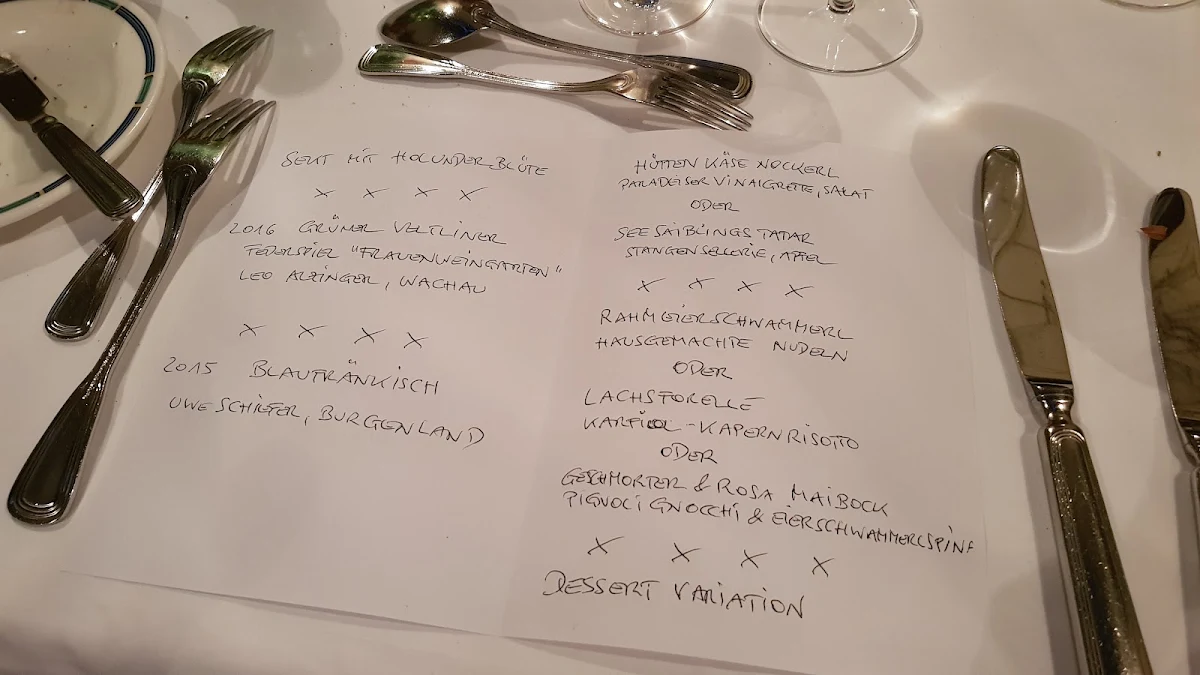 SEKT MIT HOLUNDERBLÜTE
X X X X
2016 GRÜNER VELTLINER
FEDERSPIEL "FRAUENWEINGARTEN"
LEO ALZINGER, WACHAU
X X X X
2015 BLAUFRÄNKISCH
UWE SCHIEFER, BURGENLAND
HÜTTENKÄSE NOCKERL
PARADEISER VINAIGRETTE, SALAT
ODER
SEESAIBLINGS TATAR
STANGENSELLERIE, APFEL
X X X X
RAHMEIERSCHWAMMERL
HAUSGEMACHTE NUDELN
ODER
LACHSFORELLE
KARFIOL-KAPERNRISOTTO
ODER
GESCHMORTER & ROSA MAIBOCK
PIGNOLI GNOCCHI & EIERSCHWAMMERLSPINA
X X X X
DESSERT VARIATION